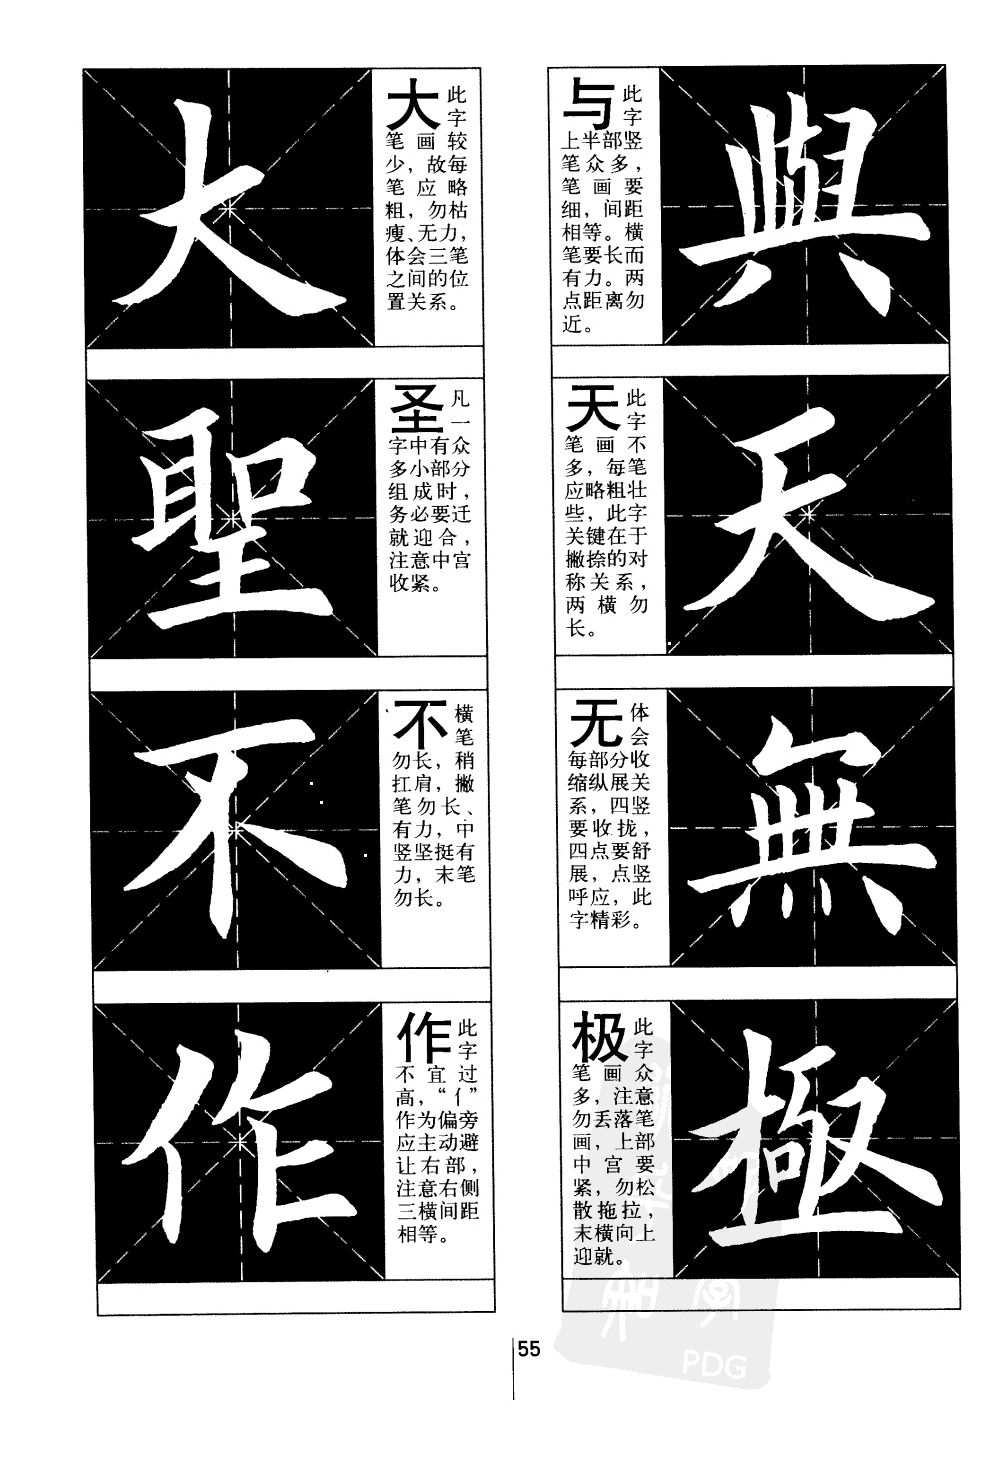 大
大此
字
笔画较
少，故每
笔应略
粗，勿枯
瘦、无力，
体会三笔
之间的位
置关系。
聖
圣凡
一
字中有众
多小部分
组成时，
务必要迁
就迎合，
注意中宫
收紧。
不
不横
笔
勿长，稍
扛肩，撇
笔勿长、
有力，中
竖坚挺有
力，末笔
勿长。
作
作此
字
不宜过
高，“亻”
作为偏旁
应主动避
让右部，
注意右侧
三横间距
相等。
與
与此
字
上半部竖
笔众多，
笔画要
细，间距
相等。横
笔要长而
有力。两
点距离勿
近。
天
天此
字
笔画不
多，每笔
应略粗壮
些，此字
关键在于
撇捺的对
称关系，
两横勿
长。
無
无体
会
每部分收
缩纵展关
系，四竖
要收拢，
四点要舒
展，点竖
呼应，此
字精彩。
極
极此
字
笔画众
多，注意
勿丢落笔
画，上部
中宫要
紧，勿松
散拖拉，
末横向上
迎就。
55
PDG